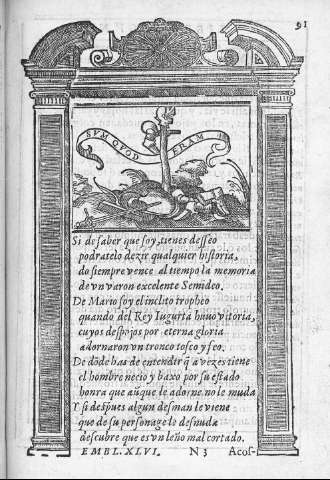 91
SVM QVOD ERAM
Si de saber que soy, tienes desseo
podratelo dezir qualquier historia,
do siempre vence al tiempo la memoria
de vn varon excelente Semideo.
De Mario soy el inclito tropheo
quando del Rey Iugurta huuo vitoria,
cuyos despojos por eterna gloria
adornaron vn tronco tosco y feo.
De dõde has de entender q̃ a vezes tiene
el hombre necio y baxo por su estado
honra que aũque le adorne no le muda
Y si despues algun desman le viene
que de su personage lo desnuda
descubre que es vn leño mal cortado.
EMBL. XLVI. N 3 Acos-